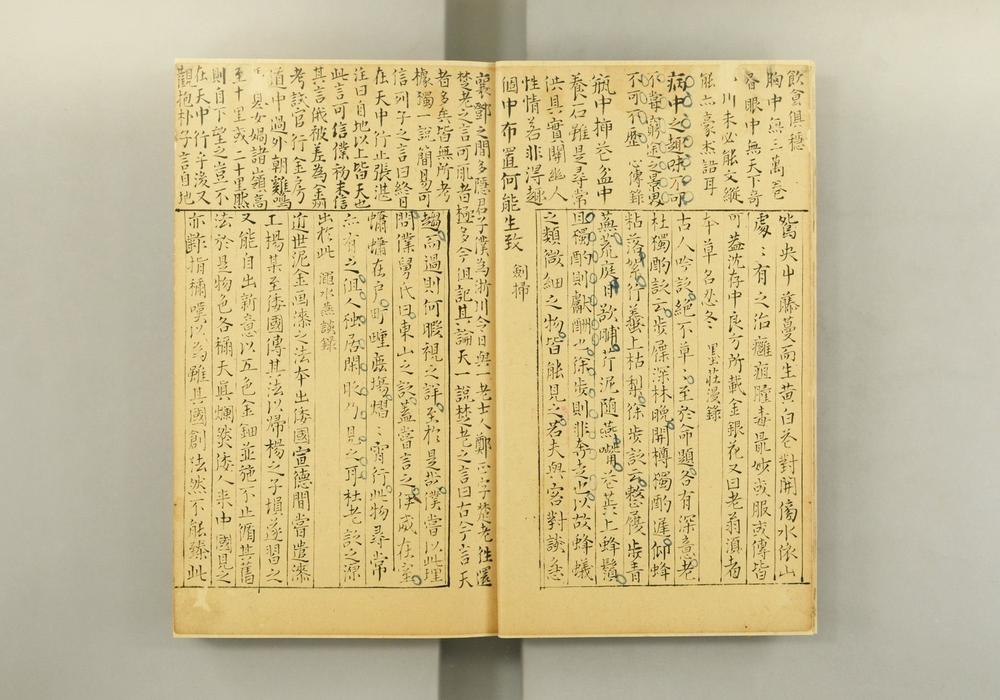 飲食俱穩
胸中無三萬卷
眼中無天下奇
山川未必能文縱
能亦豪杰語耳
病中之趣味不可
不嘗窮途之景界
不可不歷 心傳錄
瓶中插花盆中
養石雖是尋常
供具實關幽人
性情若非得趣
個中布置何能生致 劍掃
鴛央巾藤蔓而生黃白花對開傍水依山
處〻有之治癰疽腫毒最妙或服或傅皆
可蓋沈存中良方所載金銀花又曰老翁須者
本草名忍冬〻 墨莊漫錄
古人吟詩絕不草〻至於命題各有深意老
杜獨酌詩云步屧深林晚開樽獨酌遲仰蜂
粘落絮行蟻上枯梨徐步詩云整履步青
蕪荒庭日欲晡芹泥随燕觜花蕋上蜂鬚
且獨酌則獻酬也徐步則非奔走也以故蜂蟻
之類微細之物皆能見之若夫與客對談急
襄鄧之間多隱君子僕為淅川令日與一老士人鄭正字楚老往還
楚老之言可聽者極多今但記其論天一說楚老之言曰古今言天
者多矣皆無所考
據獨一說簡易可
信列子之言曰終日
在天中行止張湛
注曰自地以上皆天也
此言可信僕初未信
其言俄被差為金州
考試官行金房
道中過外朝雞鳴
息女媧諸嶺高
至十里或二十里然
則自下望之豈不
在天中行乎後又
觀抱朴子言自地
趨而過則何暇視之詳至於是哉僕嘗以此理
問僕舅氏曰東山之詩蓋嘗言之伊威在室
蠨蛸在戶町畽鹿場熠〻宵行此物尋常
亦有之但人獨居閑時乃見之耳杜老詩之源
出於此 漷水燕談錄
近世泥金画漆之法本出倭國宣德間嘗遣漆
工揚某至倭國傳其法以帰楊之子塤遂習之
又能自出新意以五色金鈿並施不止循其舊
法於是物色各稱天真爛然倭人来中國見之
亦齚指稱嘆以為雖其國創法然不能臻此